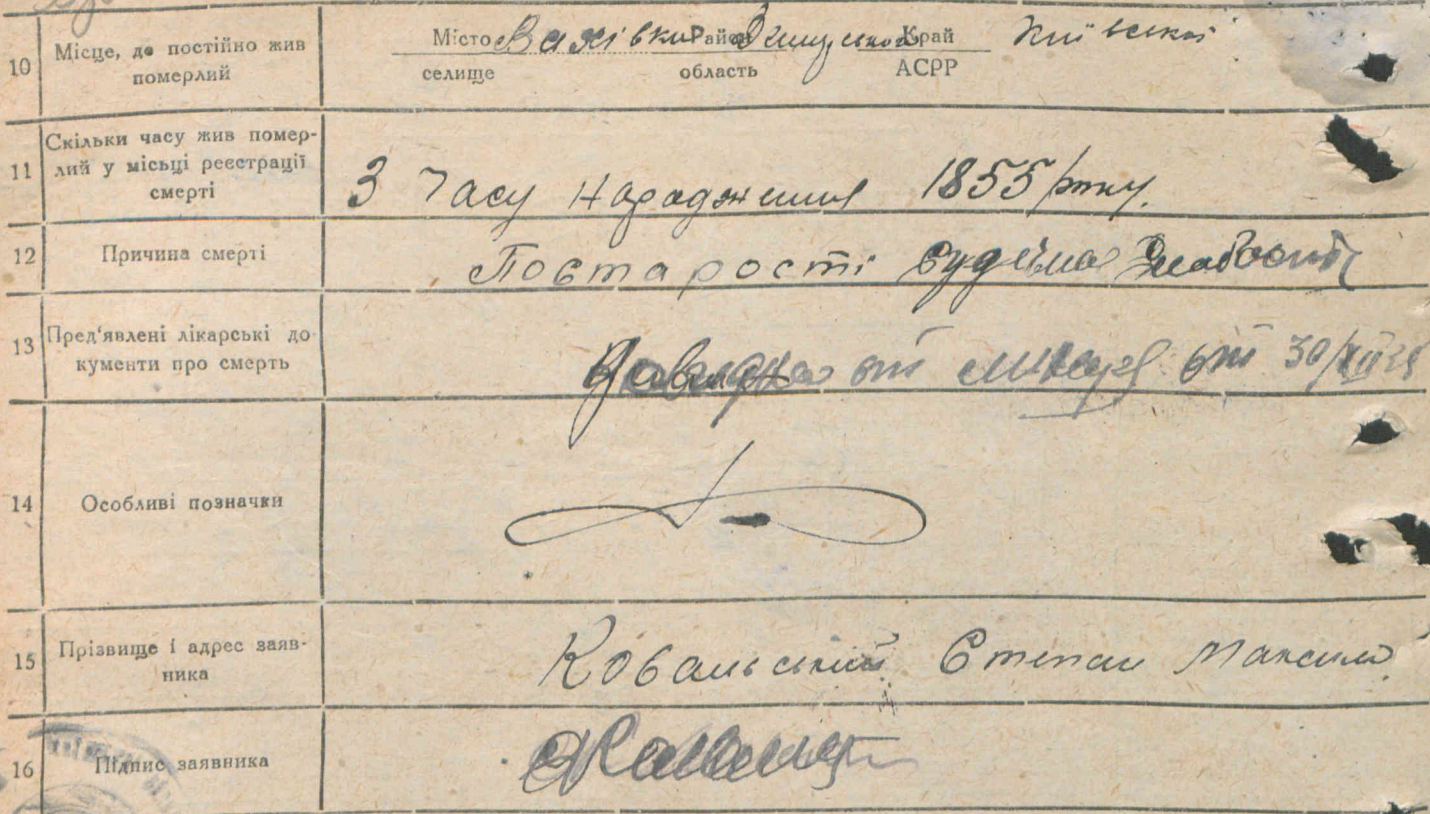 10 Місце, де постійно жив померлий
Місто Район Край Київської
селище область АСРР
11 Скільки часу жив помер-
лий у місьці реєстрації
смерті
З часу народження 1855 року.
12 Причина смерті
По старості
13 Пред'явлені лікарські до-
кументи про смерть
Довидка від 30/XII
14 Особливі позначки
15 Прізвище і адрес заяв-
ника
Ковальський Степан Максим
16 Підпис заявника